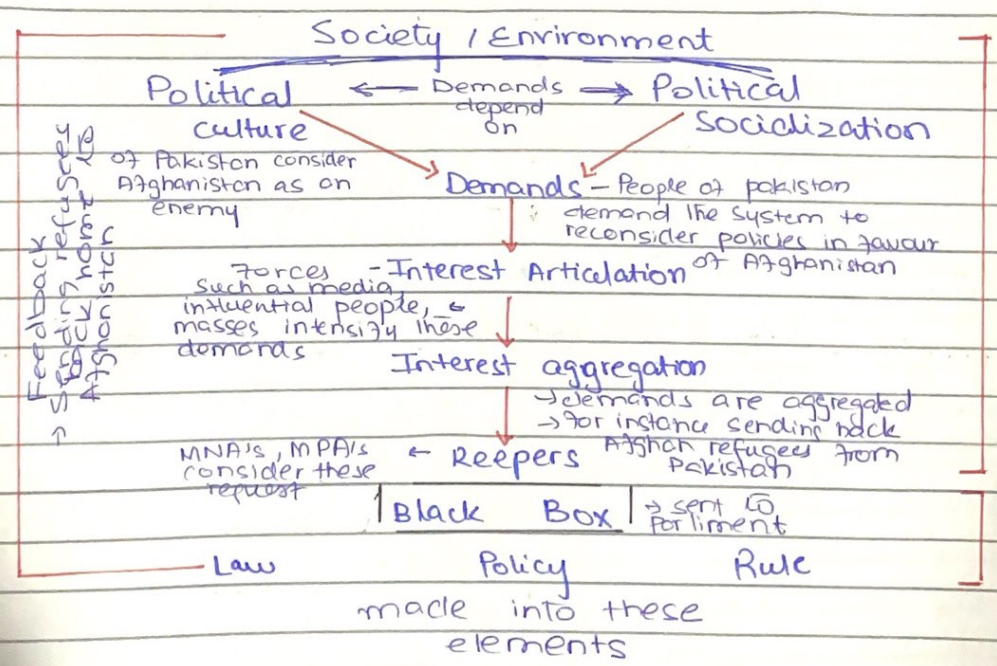 Society / Environment
Political ← Demands → Political
depend
on
culture
Socialization
of Pakistan consider
Afghanistan as an
enemy
Demands – People of pakistan
demand the system to
reconsider policies in favour
of Afghanistan
Forces - Interest Articulation
Such as media,
influential people, ←
masses intensify these
demands
Interest aggregation
→ demands are aggregated
→ for instance sending back
Afghan refugees from
Pakistan
MNA's, MPA's ← Reepers
consider these
request
Black Box → sent to
Parliment
Law Policy Rule
made into these
elements
Feedback
→ Sending refugees
back home to
Afghanistan